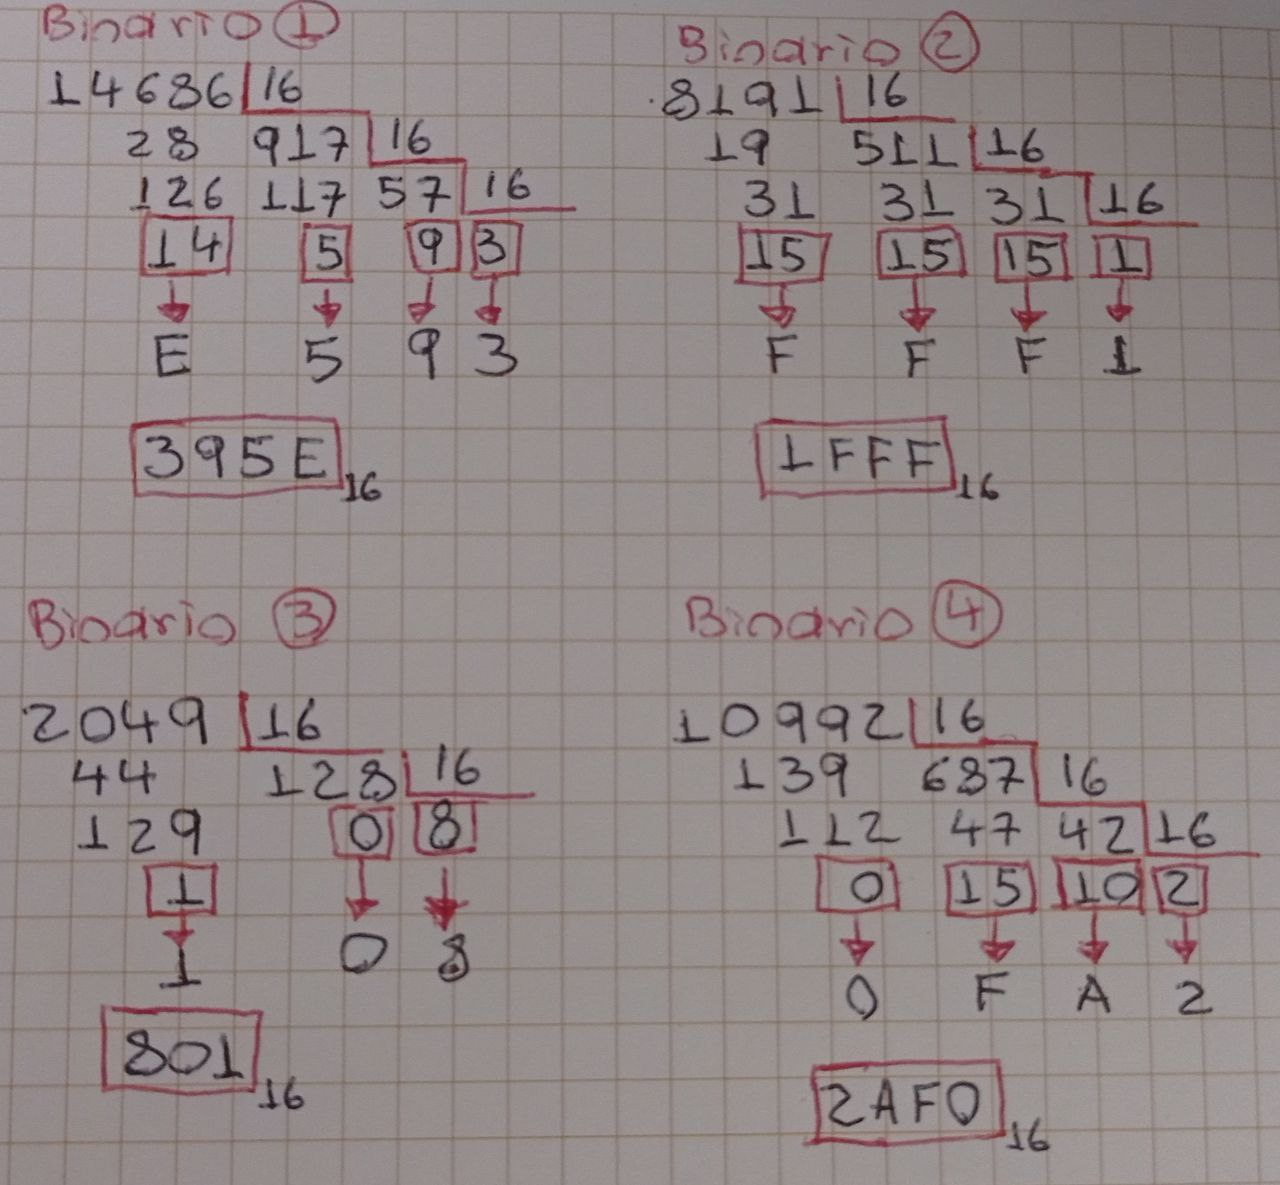 Binario 1
14686 16
28 917 16
126 117 57 16
14 5 9 3
E 5 9 3
395E 16
Binario 2
8191 16
19 511 16
31 31 31 16
15 15 15 1
F F F 1
1FFF 16
Binario 3
2049 16
44 128 16
129 0 8
1
1 0 8
801 16
Binario 4
10992 16
139 687 16
112 47 42 16
0 15 10 2
0 F A 2
2AF0 16